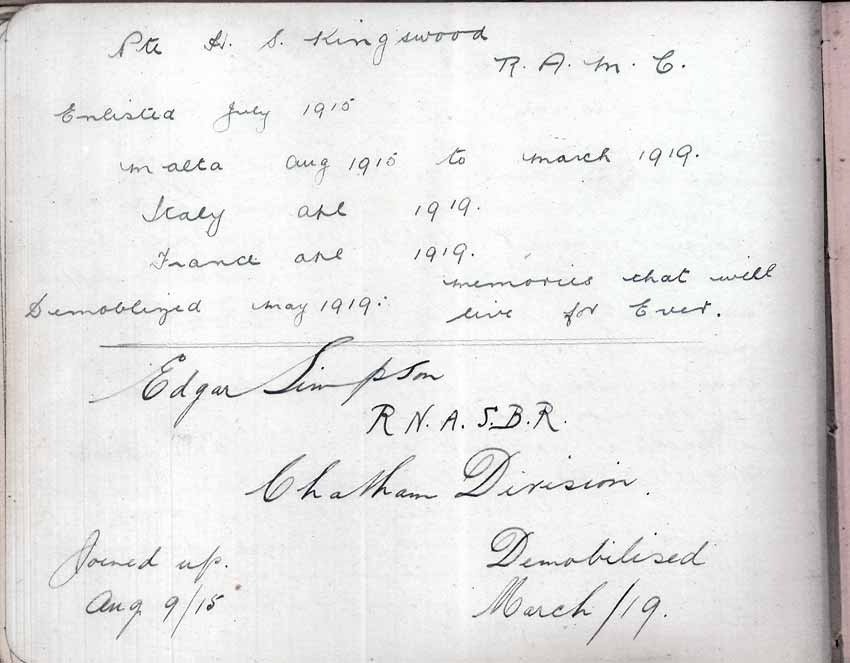 Pte H. S. Kingswood
R. A. M. C.
Enlisted July 1915
Malta Aug 1915 to March 1919.
Italy Apl 1919.
France Apl 1919.
Demoblized May 1919. Memories that will
live for Ever.
Edgar Simpson
R N. A. S. B. R.
Chatham Division.
Joined up. Demobilised
Aug 9/15 March/19.